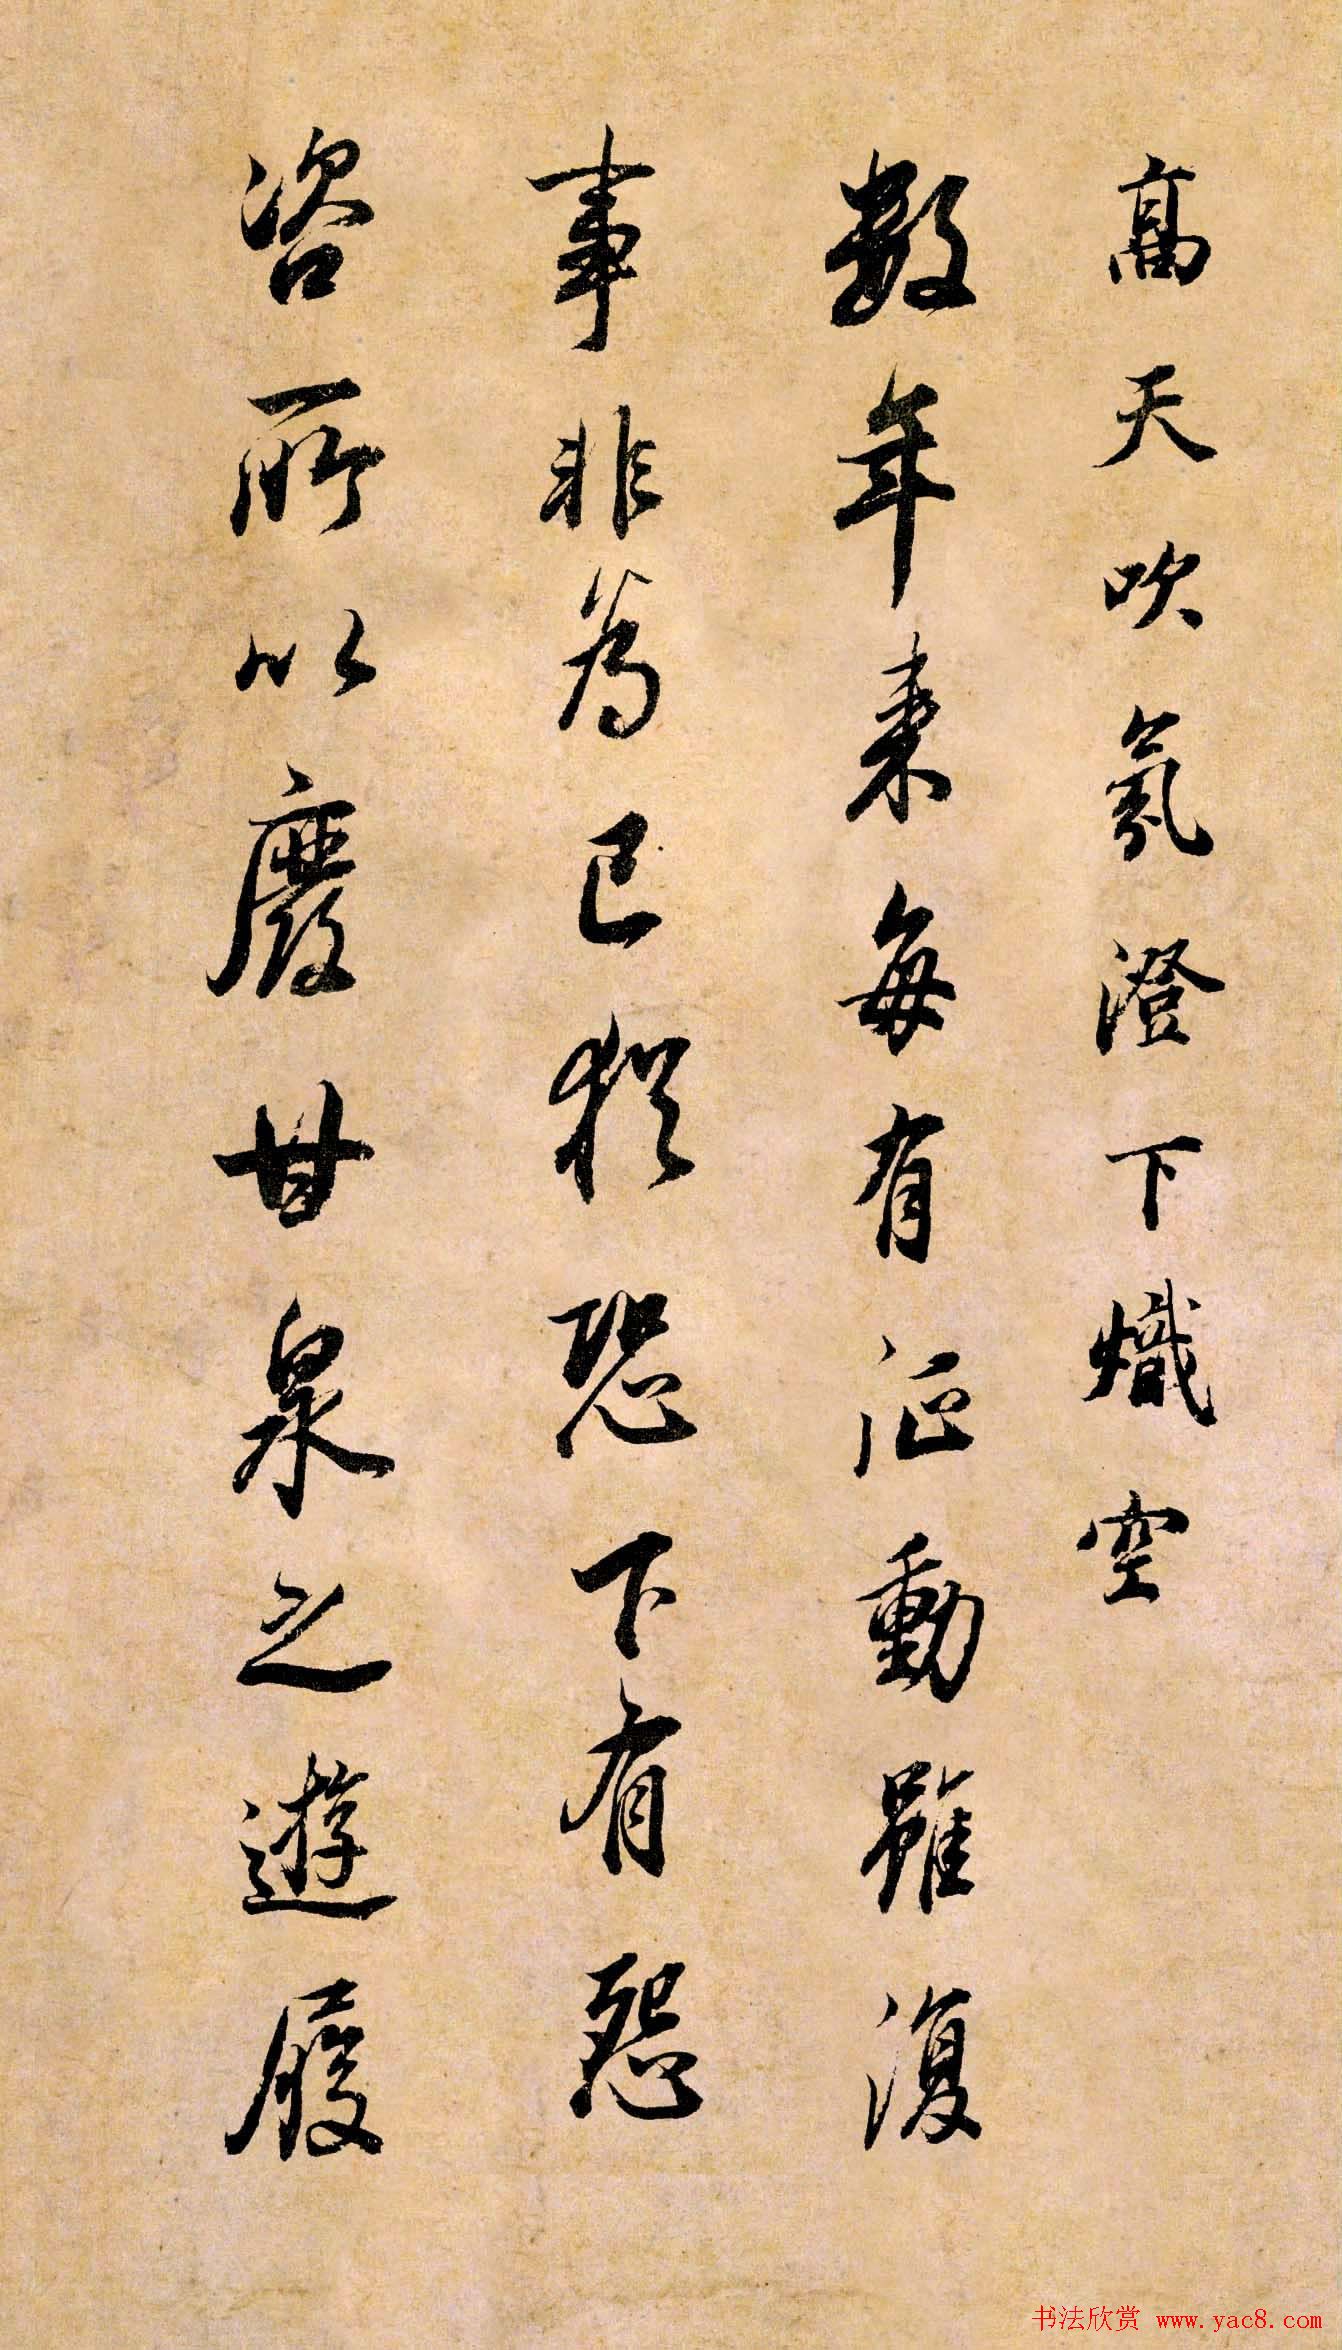 高天吹氣澄下熾空
數年来每有征動雖復
事非為己猶恐下有怨
咨所以廢甘泉之遊履
书法欣赏 www.yac8.com